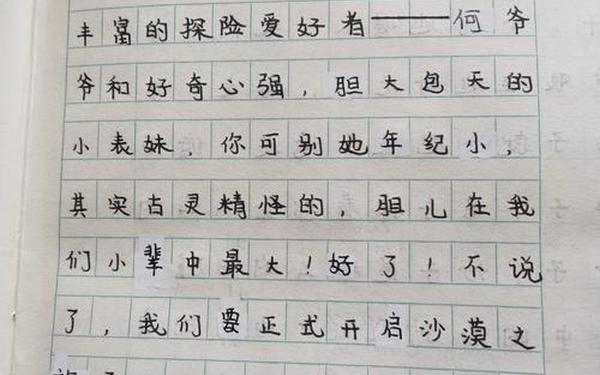 丰富的探险爱好者——何爷
爷和好奇心强，胆大包天的
小表妹，你可别她年纪小，
其实古灵精怪的，胆儿在我
们小辈中最大！好了！不说
了，我们要正式开启沙漠之